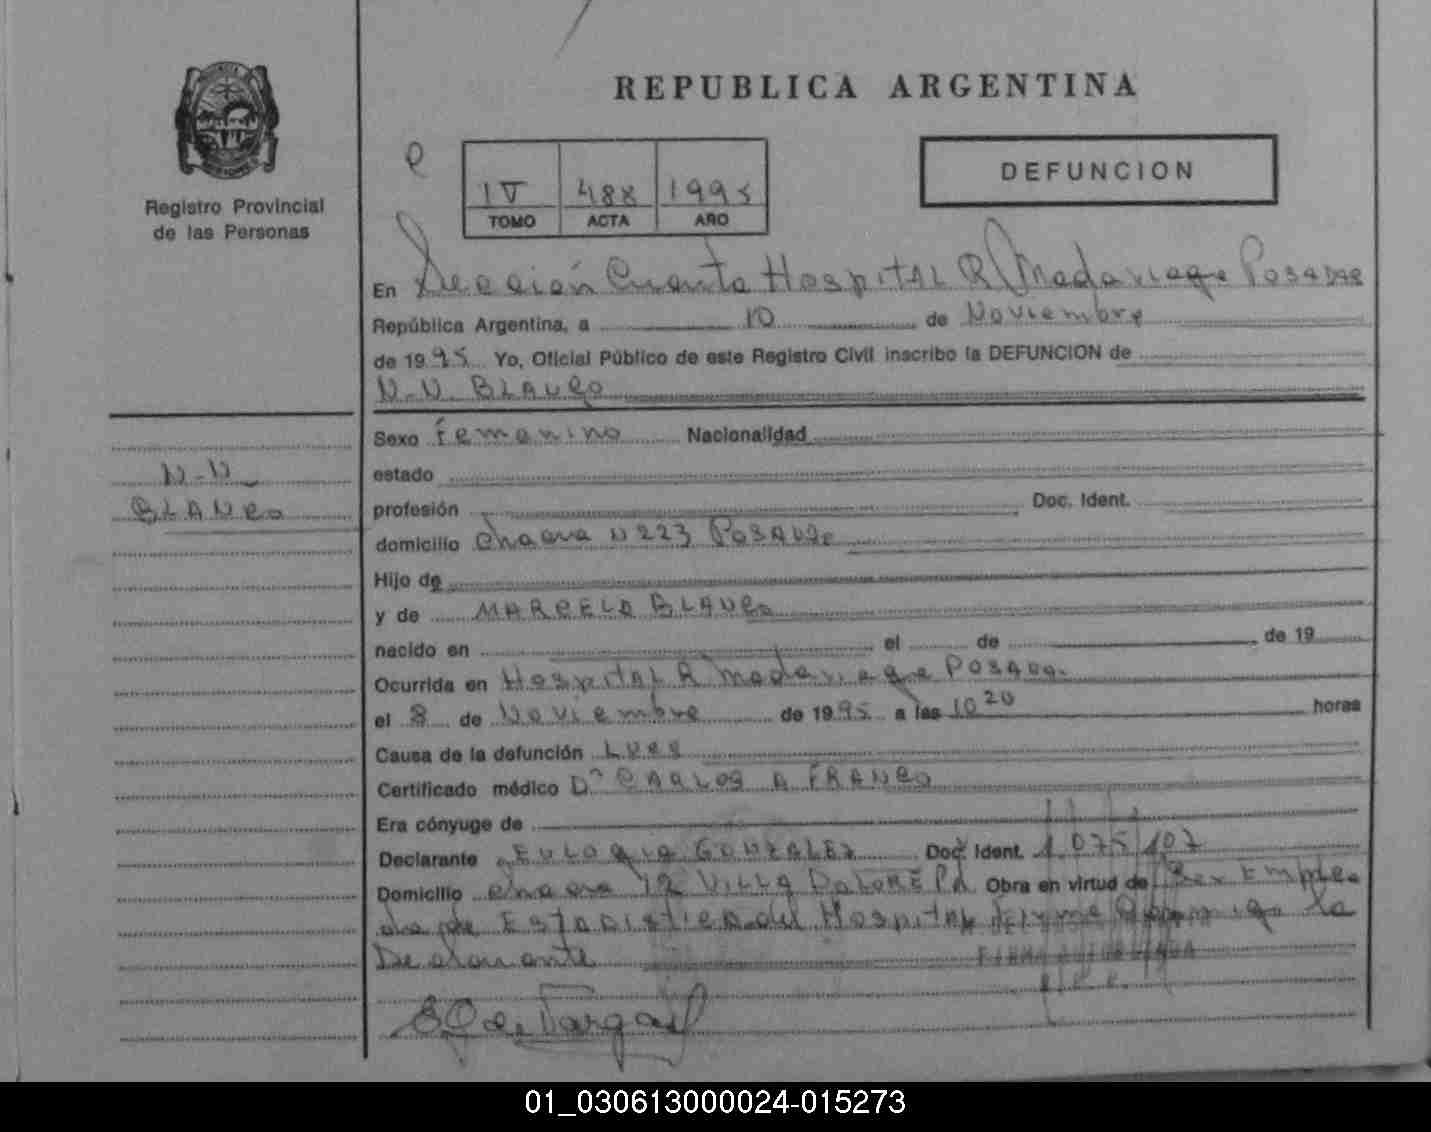 REPUBLICA ARGENTINA
Registro Provincial
de las Personas
IV 488 1995
TOMO ACTA AÑO
DEFUNCION
En Sección Cuarta Hospital R Madariaga Posadas
República Argentina, a 10 de Noviembre
de 1995 Yo, Oficial Público de este Registro Civil inscribo la DEFUNCION de
N-N. BLANCO
N-N
BLANCO
Sexo Femenino Nacionalidad
estado
profesión Doc. Ident.
domicilio chacra N 223 Posadas
Hijo de
y de MARCELA BLANCO
nacido en el de de 19
Ocurrida en Hospital R Madariaga Posadas
el 8 de Noviembre de 1995 a las 10 20 horas
Causa de la defunción Lues
Certificado médico Dr CARLOS A FRANCO
Era cónyuge de
Declarante EULOGIA GONZALEZ Doc. Ident. 1.075.107
Domicilio chacra 72 VILLA DOLORE Obra en virtud de ser Emplea
da de Estadistica del Hospital firma la
Declarante
FIRMA AUTORIZADA
E G de Vargas
01_030613000024-015273